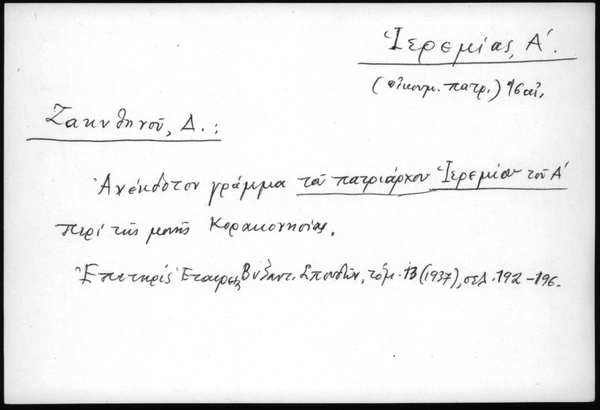 Ἱερεμίας, Α΄.
(οἰκουμ. πατρ.) 16 αἰ.
Ζακυθηνοῦ, Δ. :
Ἀνέκδοτον γράμμα τοῦ πατριάρχου Ἱερεμίου τοῦ Α΄
περὶ τῆς μονῆς Κορακονησίας.
Ἐπετηρὶς Ἑταιρείας Βυζαντ. Σπουδῶν, τόμ. 13 (1937), σελ. 192-196.